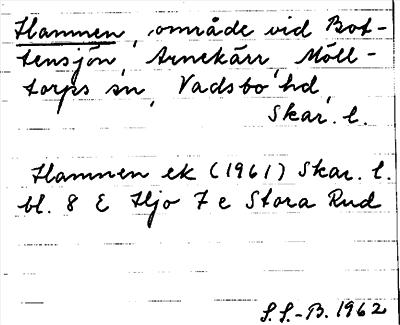 Hamnen, område vid Bot-
tensjön, Arnekärr, Möll-
torps sn, Vadsbo hd,
Skar. l.
Hamnen ek (1961) Skar. l.
bl. 8 E Hjo 7 e Stora Rud
S.S.-B. 1962